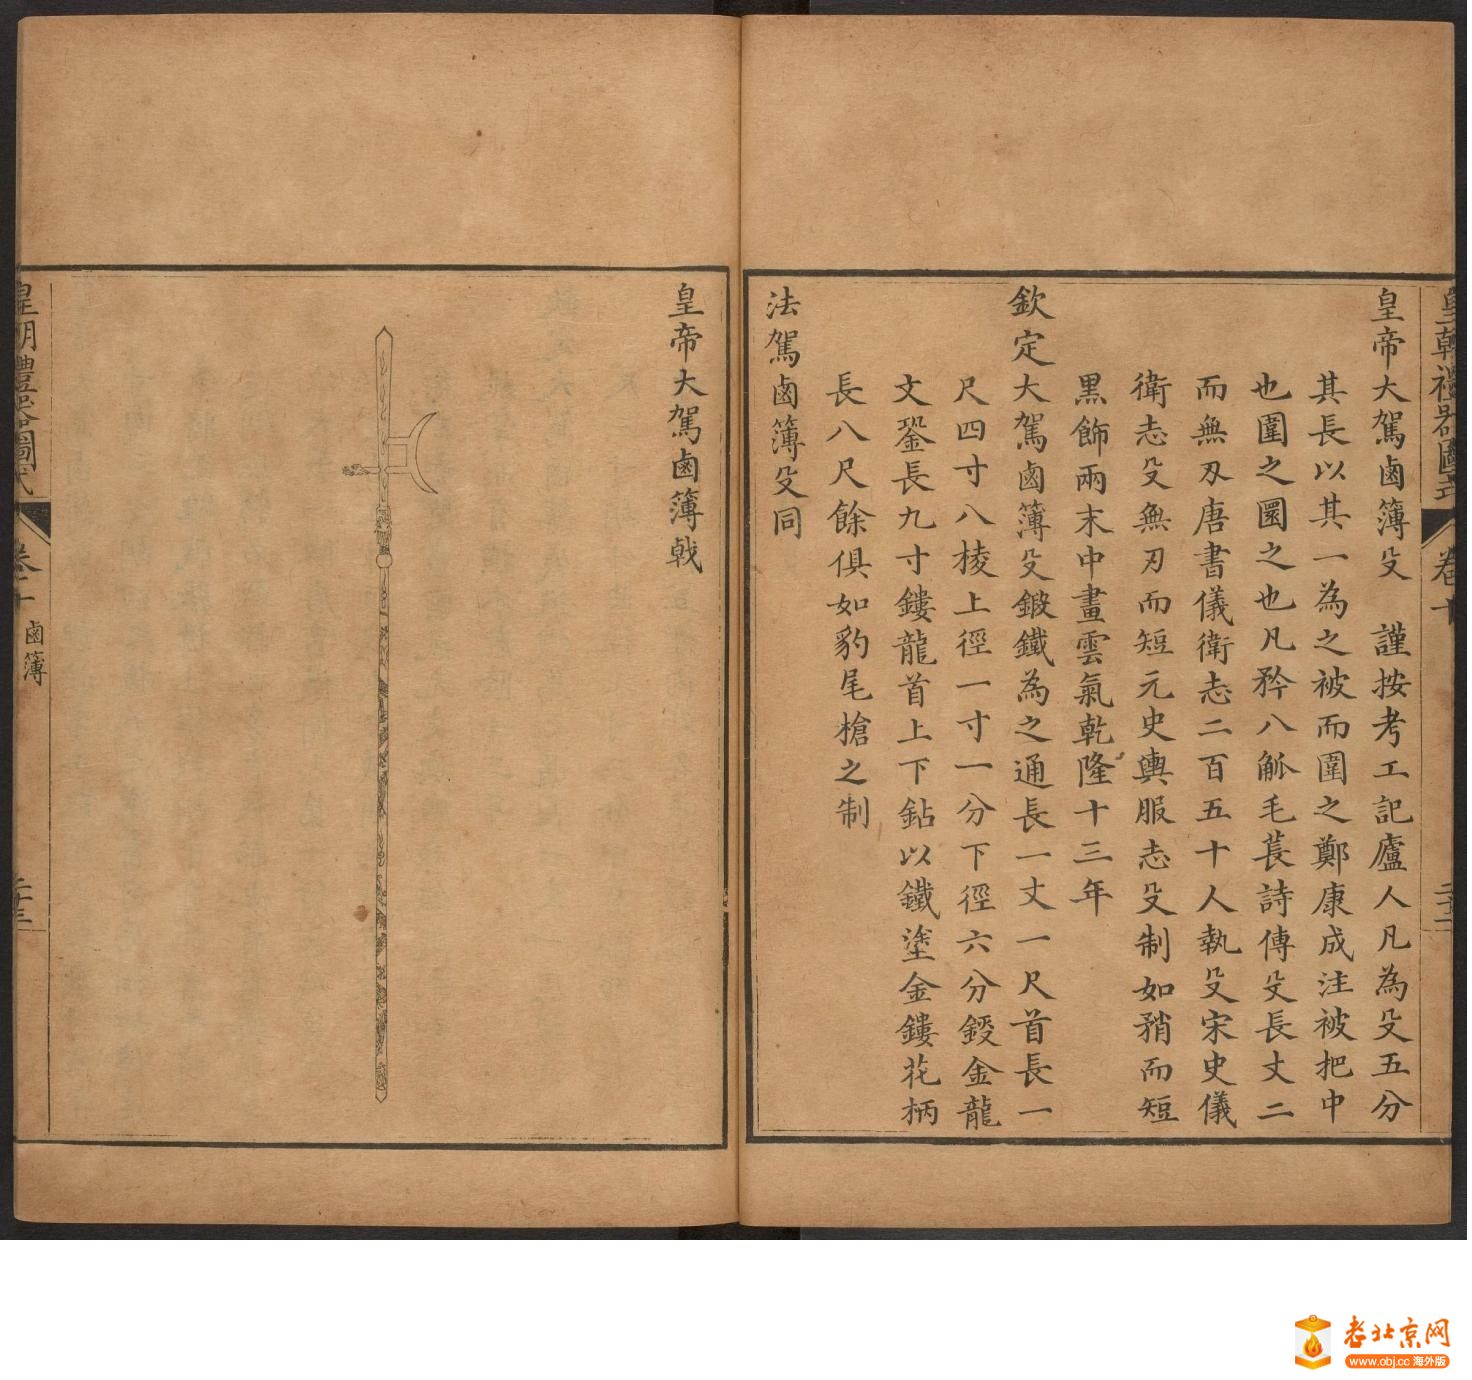 皇朝禮器圖式 卷十 二十二
皇帝大駕鹵簿殳 謹按考工記廬人凡為殳五分
其長以其一為之被而圍之鄭康成注被把中
也圍之圜之也凡矜八觚毛萇詩傳殳長丈二
而無刄唐書儀衛志二百五十人執殳宋史儀
衛志殳無刃而短元史輿服志殳制如矟而短
黑飾兩末中畫雲氣乾隆十三年
欽定大駕鹵簿殳鍛鐵為之通長一丈一尺首長一
尺四寸八棱上徑一寸一分下徑六分鋄金龍
文銎長九寸鏤龍首上下鉆以鐵塗金鏤花柄
長八尺餘俱如豹尾槍之制
法駕鹵簿殳同
皇帝大駕鹵簿戟
皇朝禮器圖式 卷十 鹵簿 二十三
老北京网
www.obj.cc 海外版